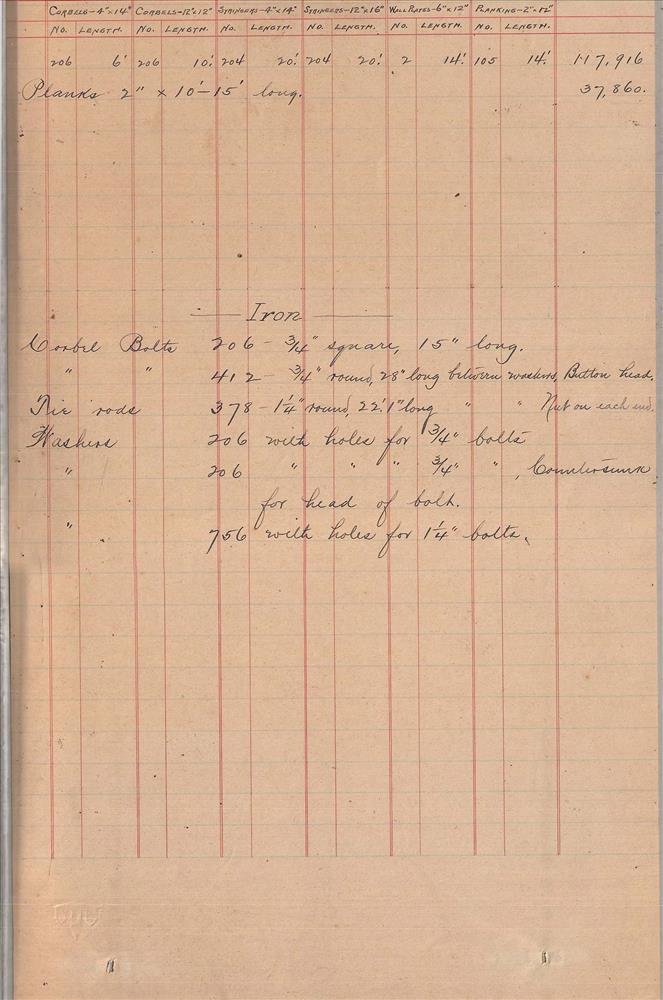 CORBELS-4"x14" CORBELS-12"x12" STRINGERS-4"x14" STRINGERS-12"x16" WALL PLATES-6"x12" PLANKING-2"x12"
NO. LENGTH. NO. LENGTH. NO. LENGTH. NO. LENGTH. NO. LENGTH. NO. LENGTH.
206 6' 206 10' 204 20' 204 20' 2 14' 105 14' 117,916
Planks 2" x 10'-15' long. 37,860.
Iron
Corbel Bolts 206 - 3/4" square, 15" long.
" " 412 - 3/4" round, 28" long between washers, Button head.
Tie rods 378 - 1 1/4" round, 22'.1" long " " Nut on each end.
Washers 206 with holes for 3/4" bolts
" 206 " " " 3/4" " , Countersunk
for head of bolt.
" 756 with holes for 1 1/4" bolts.